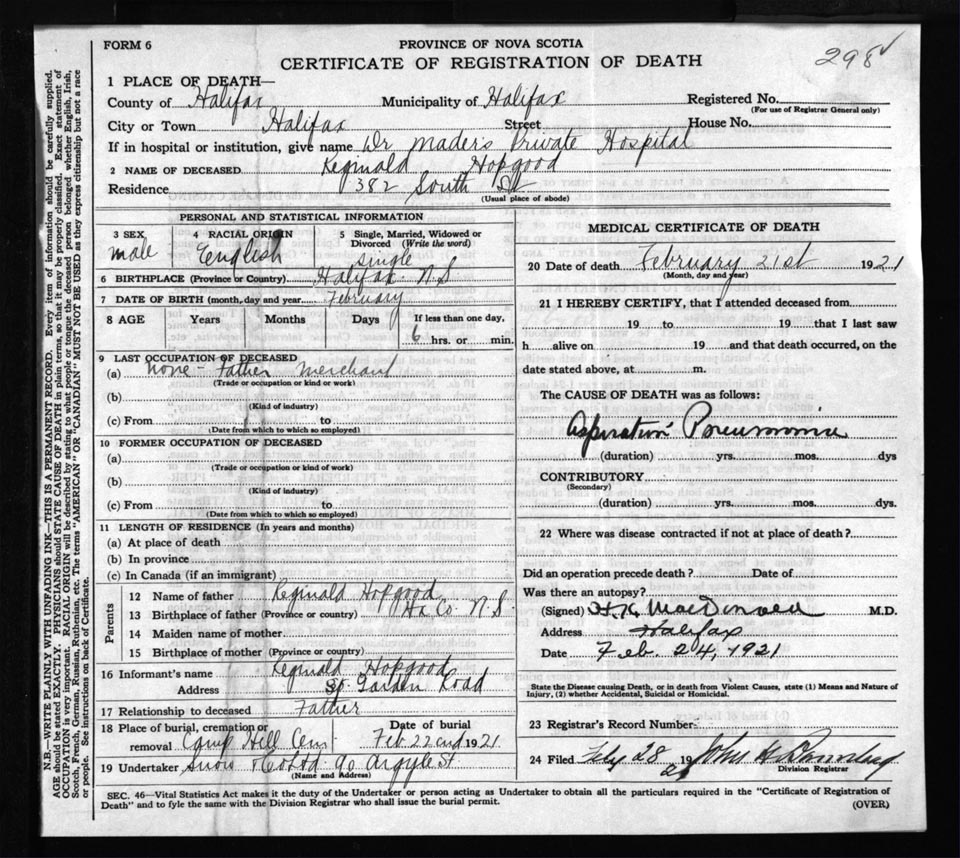 FORM 6
PROVINCE OF NOVA SCOTIA
CERTIFICATE OF REGISTRATION OF DEATH
298
1 PLACE OF DEATH—
County of Halifax Municipality of Halifax Registered No.
(For use of Registrar General only)
City or Town Halifax Street House No.
If in hospital or institution, give name Dr Mader's Private Hospital
2 NAME OF DECEASED Reginald Hopgood
Residence 382 South St
(Usual place of abode)
PERSONAL AND STATISTICAL INFORMATION
3 SEX male
4 RACIAL ORIGIN English
5 Single, Married, Widowed or Divorced (Write the word) single
6 BIRTHPLACE (Province or Country) Halifax N.S
7 DATE OF BIRTH (month, day and year) February
8 AGE Years Months Days If less than one day, 6 hrs. or min.
9 LAST OCCUPATION OF DECEASED
(a) none - Father merchant
(Trade or occupation or kind or work)
(b)
(Kind of industry)
(c) From to
(Date from which to which so employed)
10 FORMER OCCUPATION OF DECEASED
(a)
(Trade or occupation or kind of work)
(b)
(Kind of industry)
(c) From to
(Date from which to which so employed)
11 LENGTH OF RESIDENCE (In years and months)
(a) At place of death
(b) In province
(c) In Canada (if an immigrant)
Parents
12 Name of father Reginald Hopgood
13 Birthplace of father (Province or country) Hx Co. N.S.
14 Maiden name of mother
15 Birthplace of mother (Province or country)
16 Informant's name Reginald Hopgood
Address Garden Road
17 Relationship to deceased Father
18 Place of burial, cremation or removal Camp Hill Cem Date of burial Feb 22nd 1921
19 Undertaker Snow & Co Ltd 90 Argyle St
(Name and Address)
MEDICAL CERTIFICATE OF DEATH
20 Date of death February 21st 1921
(Month, day and year)
21 I HEREBY CERTIFY, that I attended deceased from
19 to 19 that I last saw
h alive on 19 and that death occurred, on the
date stated above, at m.
The CAUSE OF DEATH was as follows:
Aspiration Pneumonia
(duration) yrs. mos. dys
CONTRIBUTORY
(Secondary)
(duration) yrs. mos. dys.
22 Where was disease contracted if not at place of death?
Did an operation precede death? Date of
Was there an autopsy?
(Signed) H.K. MacDonald M.D.
Address Halifax
Date Feb. 24, 1921
State the Disease causing Death, or in death from Violent Causes, state (1) Means and Nature of
Injury, (2) whether Accidental, Suicidal or Homicidal.
23 Registrar's Record Number
24 Filed Feby 28 1921 John
Division Registrar
SEC. 46—Vital Statistics Act makes it the duty of the Undertaker or person acting as Undertaker to obtain all the particulars required in the "Certificate of Registration of
Death" and to fyle the same with the Division Registrar who shall issue the burial permit.
(OVER)
N.B.—WRITE PLAINLY WITH UNFADING INK—THIS IS A PERMANENT RECORD. Every item of information should be carefully supplied.
AGE should be stated EXACTLY. PHYSICIANS should STATE CAUSE OF DEATH in plain terms, so that it may be properly classified. Exact statement of
OCCUPATION is very important. RACIAL ORIGIN will be described by stating to what people or tongue the deceased person belonged whether English, Irish,
Scotch, French, German, Russian, Ruthenian, etc. The terms "AMERICAN" OR "CANADIAN" MUST NOT BE USED as they express citizenship but not a race
or people. See instructions on back of Certificate.